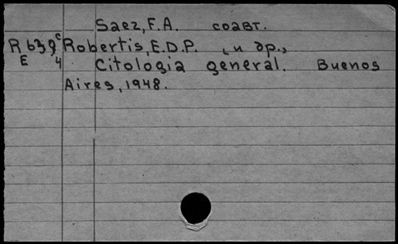 Saez, F.A. соавт.
R 639c Robertis, E.D.P. и др.,
E 4 Citologia general. Buenos
Aires, 1948.